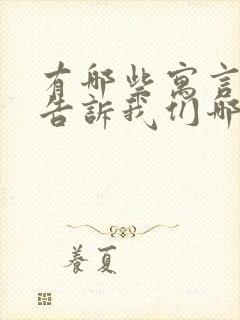 有哪些寓言
告訴我们哪
養夏